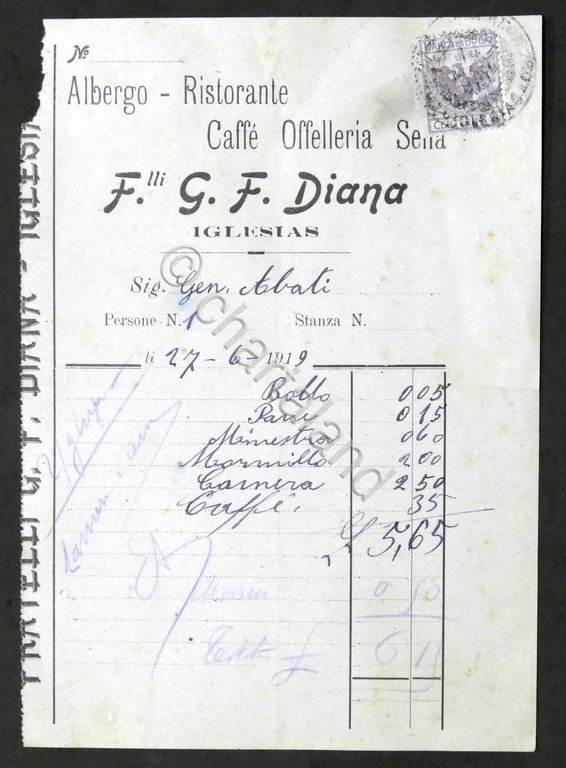 No
Albergo - Ristorante
Caffé Offelleria Sella
F.lli G. F. Diana
IGLESIAS
Sig. Gen. Abati
Persone N. 1 Stanza N.
li 27-6-1919
Bollo 0 05
Pane 0 15
Minestra 0 60
2 00
Camera 2 50
Caffé. 35
£ 5,65
0 50
6 1
FRATELLI G. F. DIANA - IGLESIA
MARCA DA BOLLO
© chartaland